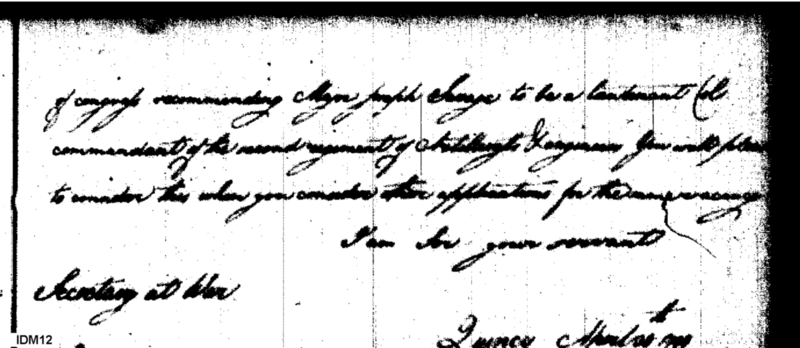 of congress recommending Major Joseph Savage to be a lieutenant Col
commandant of the second regiment of Artillery & Engineers You will please
to consider this when you consider other applications for the same vacancy
I am Sir your servant
Secretary at War
Quincy April
IDM12